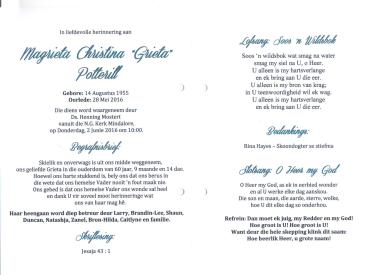 In liefdevolle herinnering aan
Magrieta Christina "Grieta"
Potterill
Gebore: 14 Augustus 1955
Oorlede: 28 Mei 2016
Die diens word waargeneem deur
Ds. Henning Mostert
vanuit die N.G. Kerk Mindalore,
op Donderdag, 2 Junie 2016 om 10:00.
Begrafnisbrief:
Skielik en onverwags is uit ons midde weggeneem,
ons geliefde Grieta in die ouderdom van 60 jaar, 9 maande en 14 dae.
Hoewel ons harte stukkend is, bely ons dat ons berus in
die wete dat ons hemelse Vader nooit 'n fout maak nie.
Ons gebed is dat ons hemelse Vader ons wonde sal heel
en dank U vir soveel mooi herinneringe wat
ons van haar mag hê.
Haar heengaan word diep betreur deur Larry, Brandin-Lee, Shaun,
Duncan, Natashja, Zanel, Bron-Hilda, Caitlyne en familie.
Skriflesing:
Jesaja 43 : 1
Lofsang: Soos 'n Wildsbok
Soos 'n wildsbok wat smag na water
smag my siel na U, o Heer.
U alleen is my hartsverlange
en ek bring aan U die eer.
U alleen is my bron van krag;
in U teenwoordigheid wil ek wag.
U alleen is my hartsverlange
en ek bring aan U die eer.
Bedankings:
Rina Hayes – Skoondogter se stiefma
Slotsang: O Heer my God
O Heer my God, as ek in eerbied wonder
en al U werke elke dag aanskou.
Die son en maan, die aarde, sterre, wolke,
hoe U dit elke dag so onderhou.
Refrein: Dan moet ek juig, my Redder en my God!
Hoe groot is U! Hoe groot is U!
Want deur die hele skepping klink dit saam:
Hoe heerlik Heer, u grote naam!